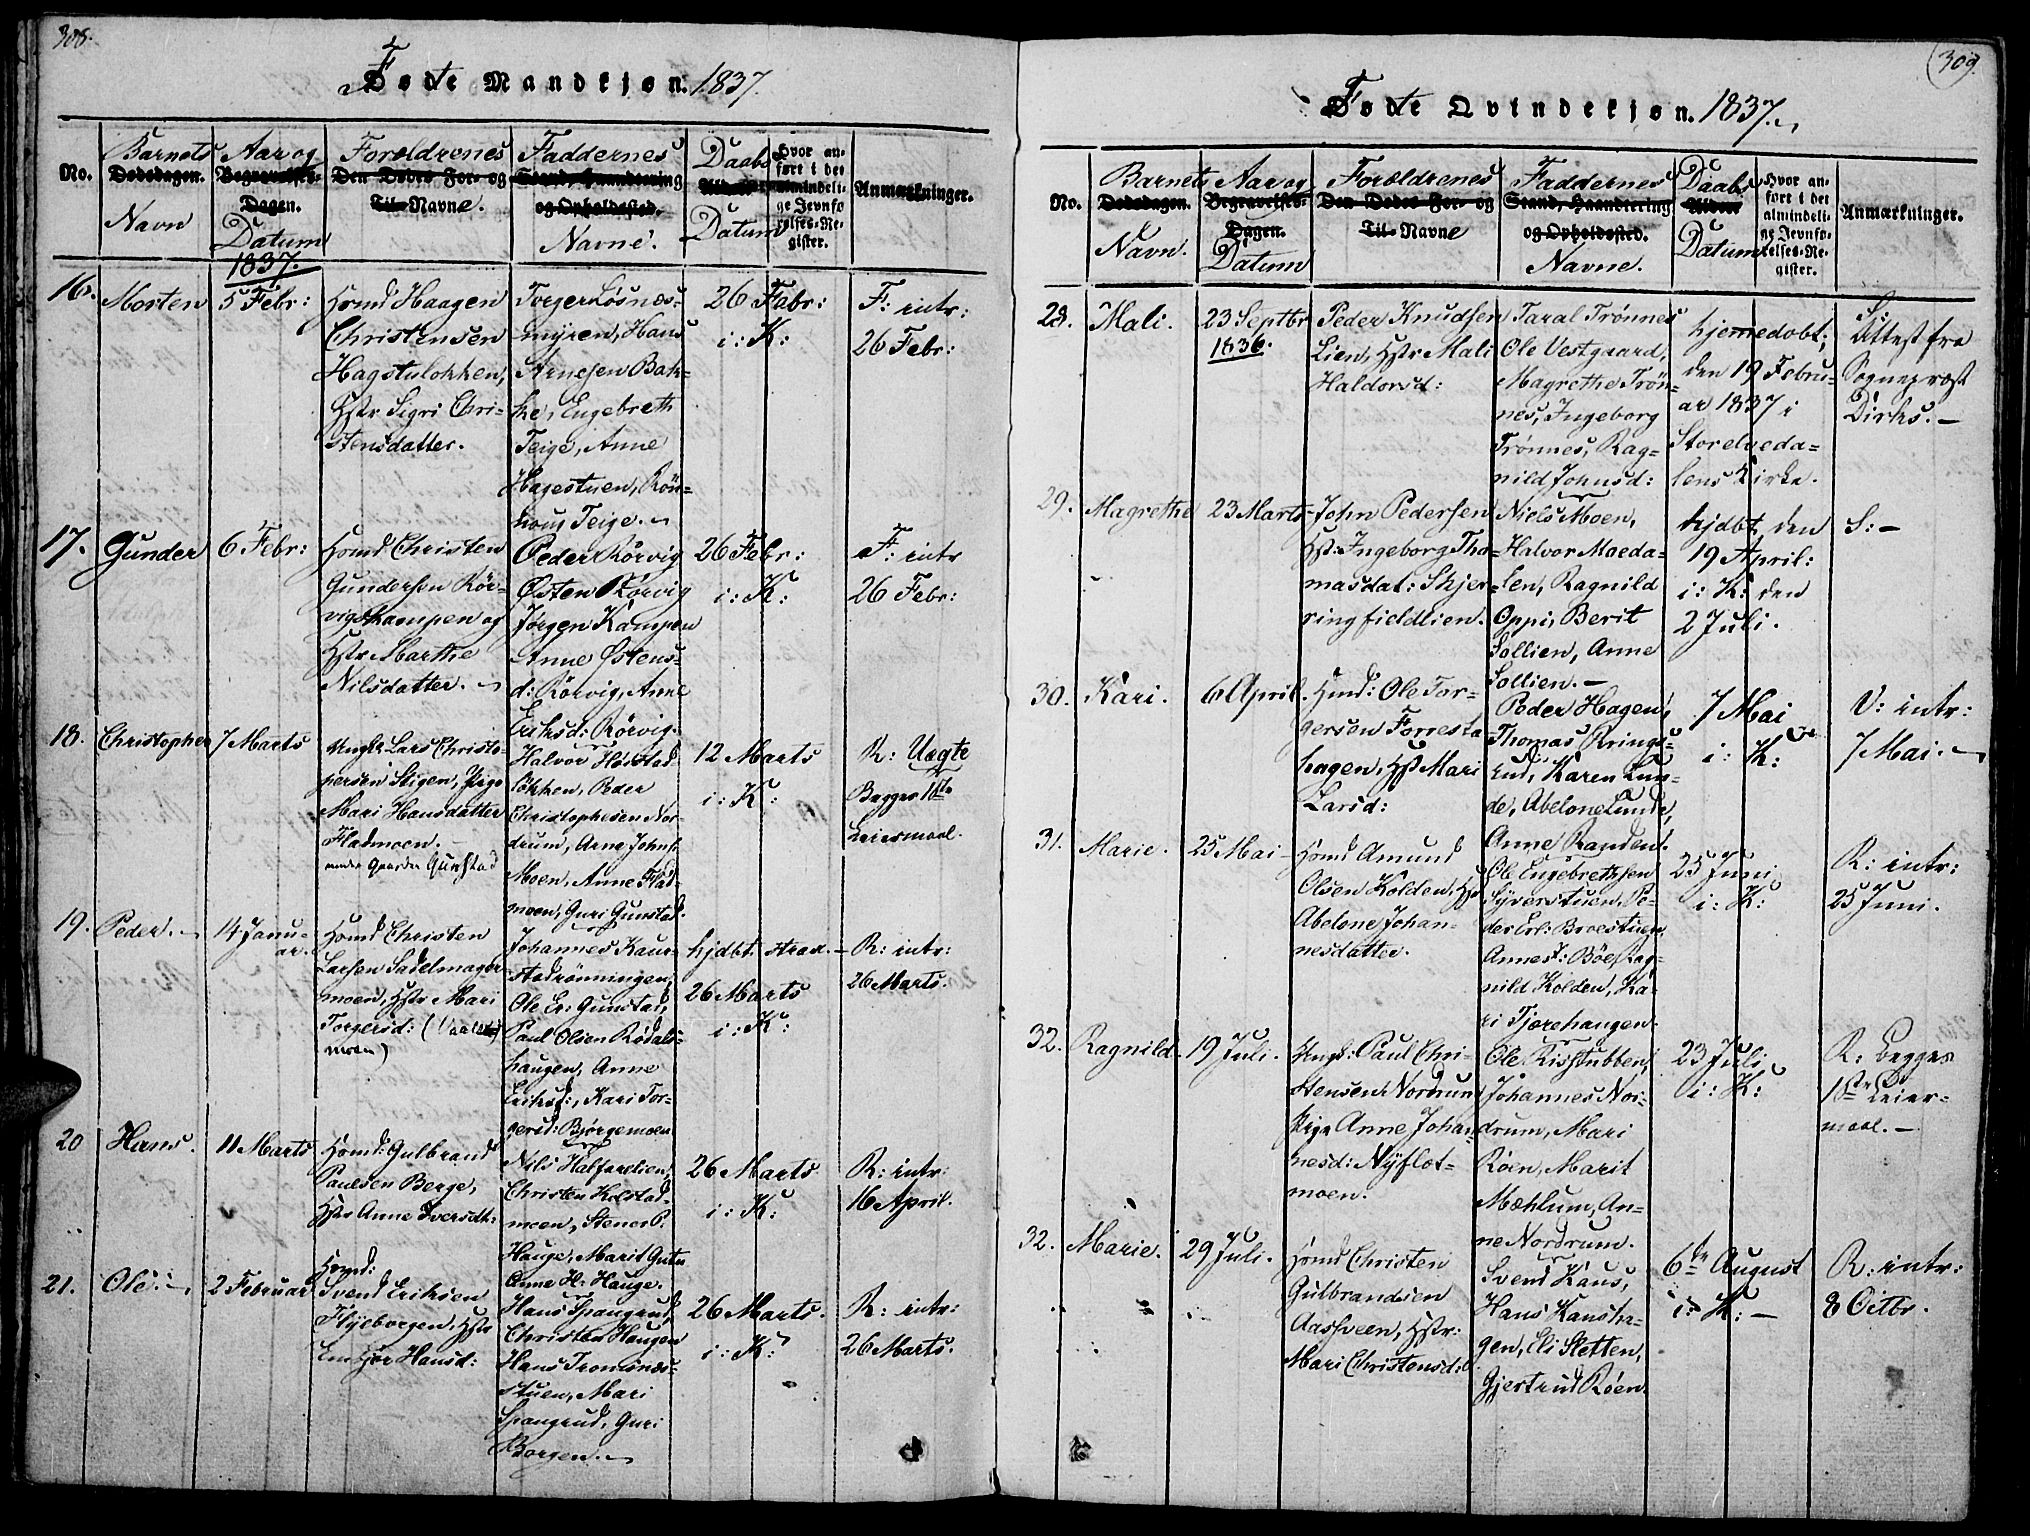 308.
Føde Mandkjøn. 1837.
No.
Barnets
Dødsdagen.
Navn
Aar og
Begravelses-
Dagen.
Datum
1837.
Forældrenes
Den Dødes For- og
Til-Navne.
Faddernes
Stand, Haandtering
og Opholdssted.
Navne.
Daabs
Alder
Datum
Hvor an-
ført i det
almindeli-
ge Jevnfø
relses-Re-
gister.
Anmærkninger.
16.
Morten
5 Febr:
Hsmd Haagen
Christensen
Hagstulökken,
Hstr Sigri Chri-
stensdatter.
Torger Løsnæs-
myren, Hans
Arnesen Bak-
ke, Engebreth
Teige, Anne
Hagestuen, Rön-
noug Teige.
26 Febr:
i: K:
F: intr:
26 Febr:
17.
Gunder
6 Febr:
Hsmd Christen
Gundersen Rör-
vigskampen og
Hstr Marthe
Nilsdatter.
Peder Rörvig
Østen Rörvig
Jørgen Kampen
Anne Østens-
d: Rörvig, Anne
Eriksd: Rörvig.
26 Febr:
i: K:
F: intr
26 Febr:
18.
Christopher
7 Marts
Ungk Lars Christo-
phersen Stigen, Pige
Mari Hansdatter
Fladmoen.
under Gaarden Gunstad
Halvor Höistad
lökken, Peder
Christophesen Nor-
drum, Arne Johns:
Moen, Anne Flad-
moen, Guri Gunstad.
12 Marts
i: K:
R: Uægte
Begges 1ste
Leiermaal.
19.
Peder.
14 Janu-
ar.
Hsmd Christen
Larsen Sadelmager
moen, Hstr Mari
Torgersd:
moen)
Johannes Kaur-
stadrönningen,
Ole Er: Gunstad,
Paul Olsen Rödals-
haugen, Anne
Eriksd:, Kari Tor-
gersd: Bjørgemoen
hjdbt strax.
26 Marts
i: K:
R: intr:
26 Marts.
20
Hans.
11 Marts
Hsmd: Gulbrand
Paulsen Berge,
Hstr Anne Iversdt:
Nils Halfarelien,
Christen Kolstad-
moen, Stener P.
Hauge, Marit
Anne H: Hauge.
26 Marts
i: K:
R: intr:
16 April.
21.
Ole.
2 Februar
Hsmd:
Svend Eriksen
Flyeborgen, Hstr
Embjør Hansd:
Hans Spangrud,
Christen Haugen
Hans Tromsnæs-
stuen, Mari
Spangrud, Guri
Borgen.
26 Marts.
i: K:
R: intr:
26 Marts.
309.
Føde Qvindekjøn. 1837.
No.
Barnets
Dødsdagen.
Navn.
Aar og
Begravelses-
Dagen.
Datum
Forældrenes
Den Dødes For- og
Til-Navne
Faddernes
Stand, Haandtering
og Opholdssted.
Navne.
Daabs
Alder
Datum
Hvor an-
ført i det
almindeli-
ge Jevnfø-
relses-Re-
gister.
Anmærkninger.
28.
Mali.
23 Septbr
1836.
Peder Knudsen
Lien, Hstr Mali
Haldorsd:
Taral Trønnes
Ole Vestgaard,
Magrethe Trön-
nes, Ingeborg
Trønnes, Rag-
nild Johnsd:
hjemedøbt,
den 19 Febru-
ar 1837 i
Storelveda-
lens Kirke.
S:
Attest fra
Sogneprest
Dirks.
29.
Magrethe
23 Marts
John Pedersen
Hst: Ingeborg Tho-
masdat: Skjer-
ringfieldlien.
Niels Moen,
Halvor Moeda-
len, Ragnild
Oppi, Berit
Sollien, Anne
Sollien.
hjdbt, den
19 April:
i: K: den
2 Juli.
S:
30.
Kari.
6 April.
Hsmd: Ole Tor-
gersen Forresta
hagen, Hst Mari
Larsd:
Peder Hagen,
Thomas Rings-
rud, Karen Lun-
de, Abelone Lunde,
Anne Randen.
7 Mai
i: K:
V: intr:
7 Mai.
31.
Marie.
25 Mai
Hsmd Amund
Olsen Kolden, Hst
Abelone Johan-
nesdatter.
Ole Engebrethsen
Syverstuen, Pe-
der Erl: Broestuen
Anne J: Böe, Rag-
nild Kolden, Ka-
ri Tjærehaugen.
25 Juni
i: K:
R: intr:
25 Juni.
32.
Ragnild.
19 Juli.
Ungk: Paul Chri-
stensen Nordrum
Pige Anne Johan-
nesd: Nyflot-
moen.
Ole Risstubben,
Johannes Nor-
drum, Mari
Röen, Marit
Mæhlum, An-
ne Nordrum.
23 Juli
i: K:
R: begges
1ste Leier-
maal.
32.
Marie.
29 Juli.
Hsmd Christen
Gulbrandsen
Aassveen, Hstr:
Mari Christensd:
Svend Kaus,
Hans Kausha-
gen, Eli Sletten,
Gjertrud Röen.
6te August
i: K:
R: intr:
8 Octbr.